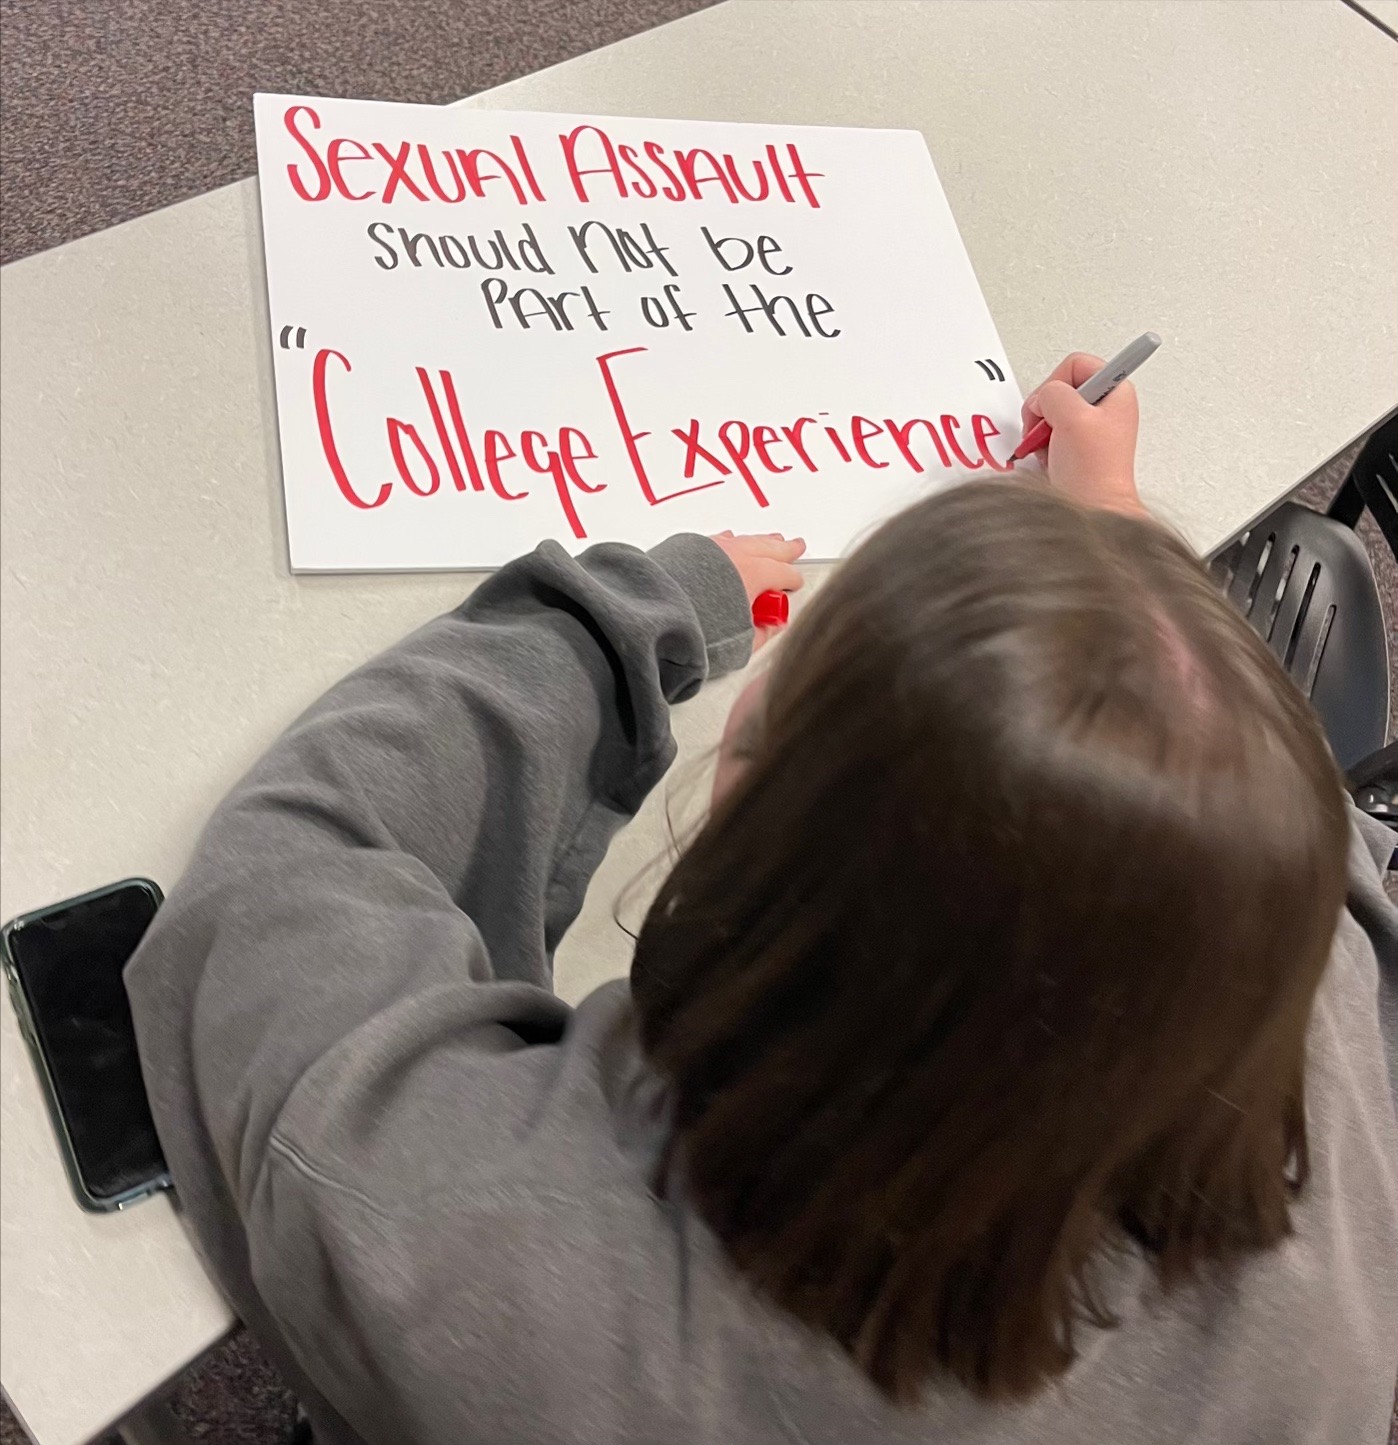 Sexual Assault
should not be
Part of the
"College Experience"